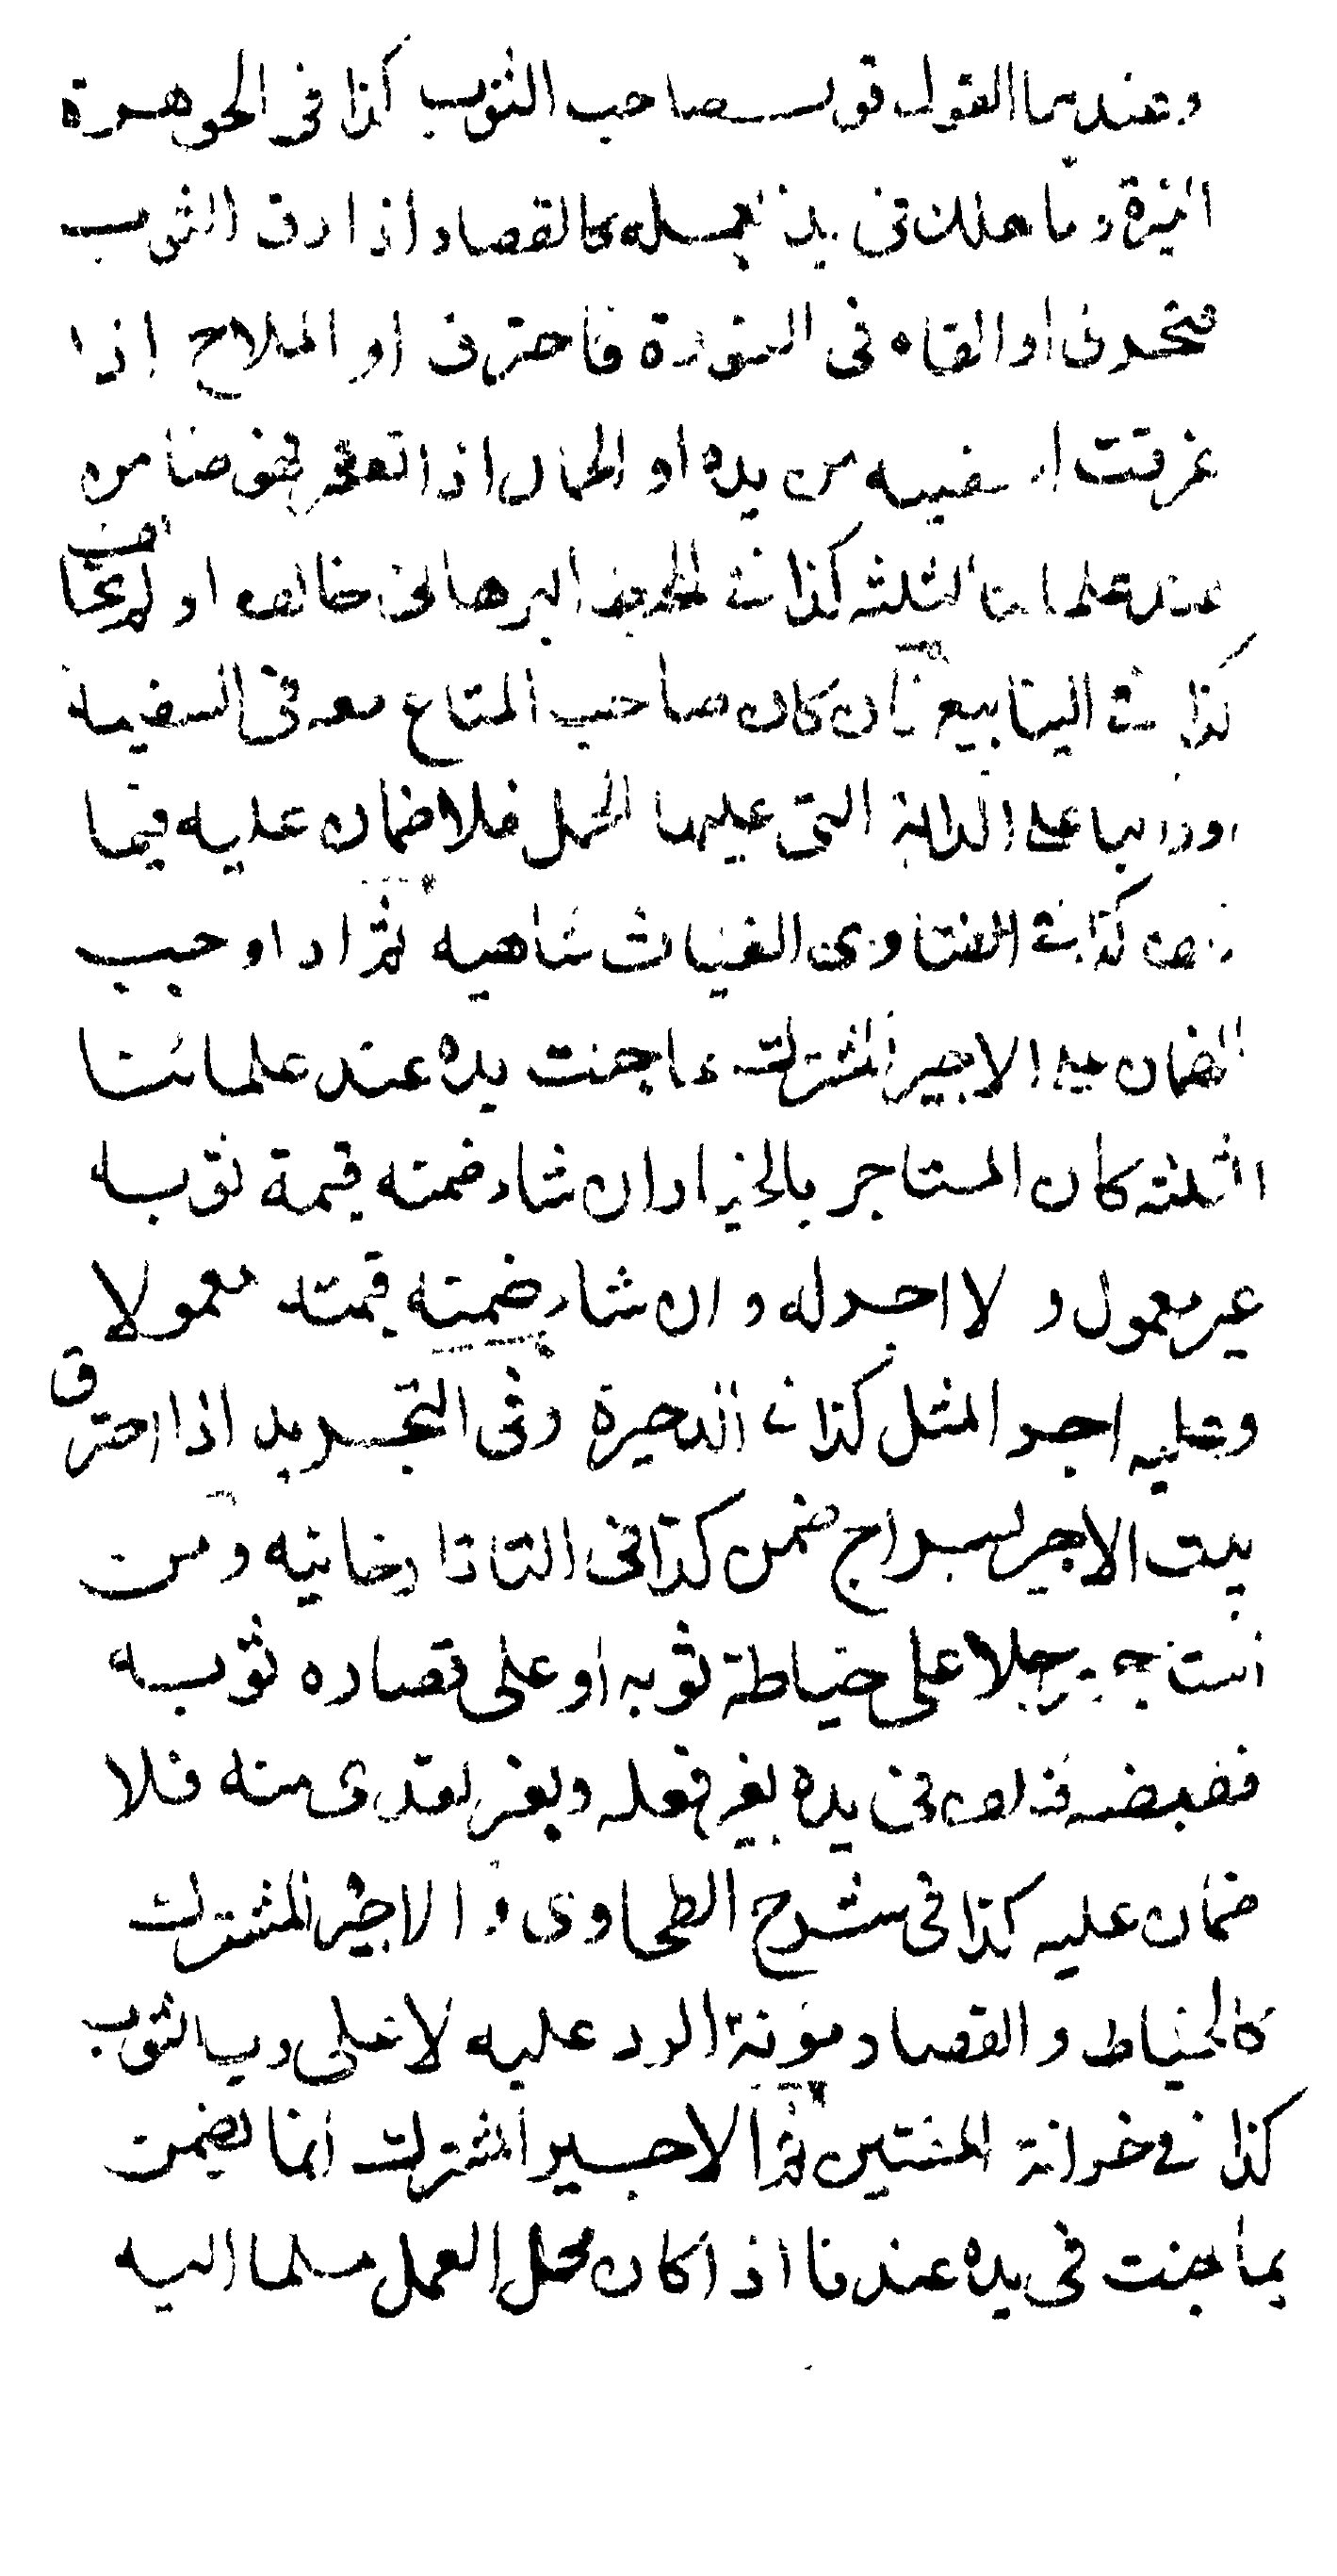 وعندهما القول قول صاحب الثوب كذا فى الجوهرة
النيرة وما هلك فى يده بعمله كالقصار اذا دق الثوب
فتخرق او القاه فى النورة فاحترق او الملاح اذا
غرقت السفينه من يده او الحمال اذا تعثر فهو ضامن
عند علمائنا الثلثه كذا فى المحيط البرهانى خالف او لم يخالف
كذا فى الينابيع فان كان صاحب المتاع معه فى السفينة
او راكبا على الدابة التى عليها الحمل فلا ضمان عليه فيما
تلف كذا فى الفتاوى الغياث شاهيه ثم اذا وجب
الضمان على الاجير المشترك بما جنت يده عند علمائنا
الثلثه كان المستاجر بالخيار ان شاء ضمنه قيمة ثوبه
غير معمول و لا اجر له و ان شاء ضمنه قيمته معمولا
وعليه اجر المثل كذا فى الذخيرة وفى التجريد اذا احترق
بيت الاجير بسراج ضمن كذا فى التاتارخانيه ومن
استاجر رجلا على خياطة ثوبه او على قصاره ثوبه
فقبضه فتلف فى يده بغير فعله وبغير تعدى منه فلا
ضمان عليه كذا فى شرح الطحاوى و الاجير المشترك
كالخياط و القصار مؤنة الرد عليه لا على رب الثوب
كذا فى خزانة المفتين ثم الاجير المشترك انما يضمن
بما جنت فى يده عندنا اذا كان محل العمل مسلما اليه